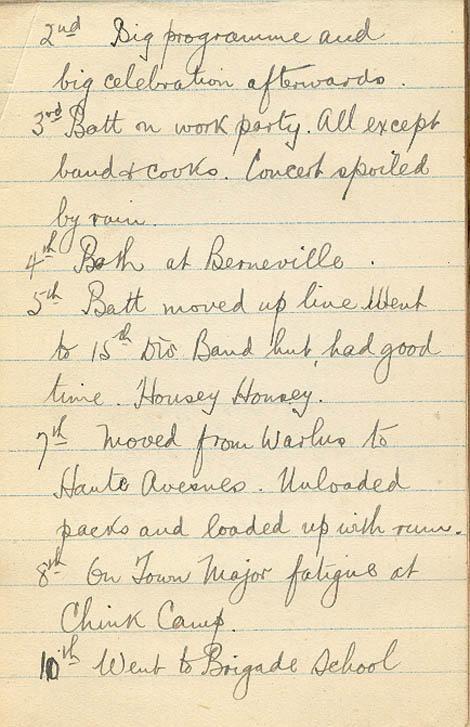 2nd Big programme and
big celebration afterwards.
3rd Batt on work party. All except
band & cooks. Concert spoiled
by rain.
4th Bath at Berneville.
5th Batt moved up line Went
to 15th Div Band hut, had good
time. Housey Housey.
7th Moved from Warlus to
Haute Avesnes. Unloaded
packs and loaded up with rum.
8th On Town Major fatigue at
Chink Camp.
10th Went to Brigade School